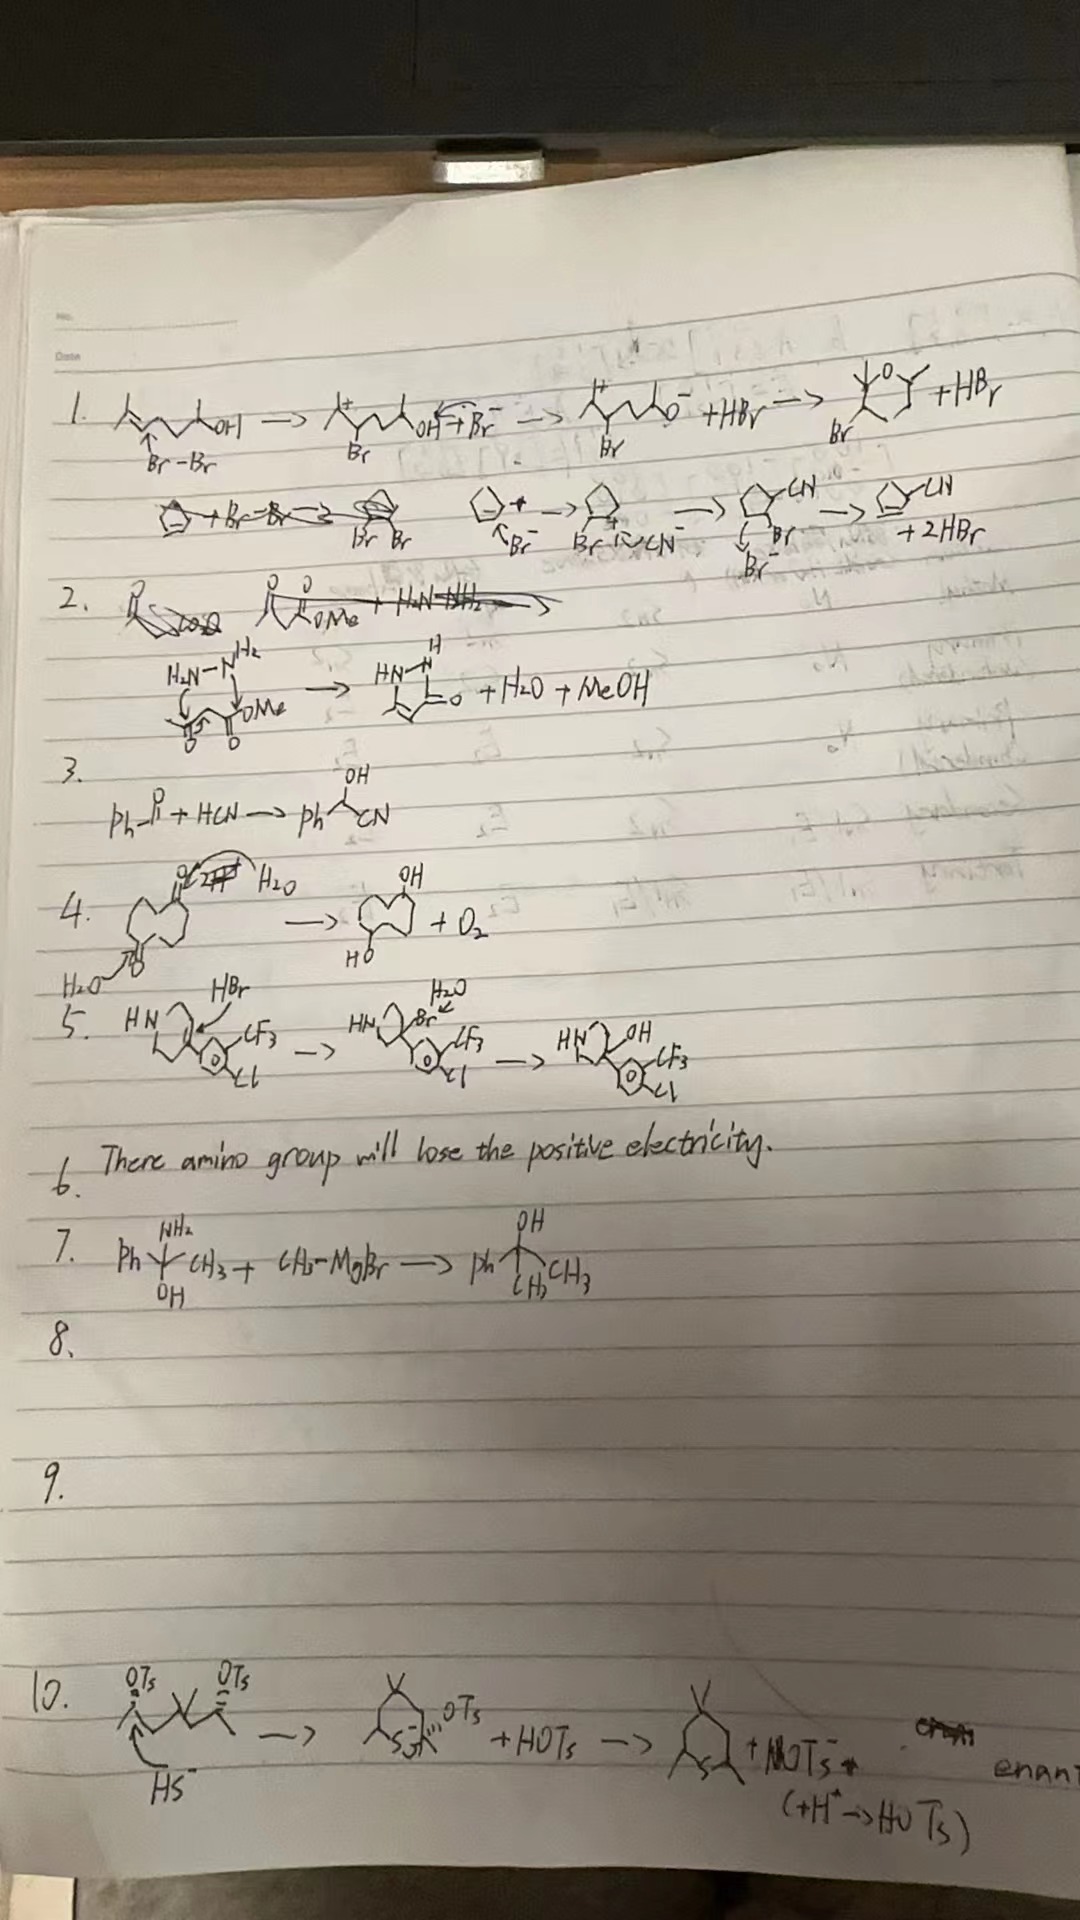 No.
Date
1. OH → OH + Br⁻ → O⁻ + HBr → O + HBr
Br-Br Br Br Br
+ → CN → CN
Br⁻ Br CN⁻ Br + 2HBr
Br Br Br⁻
2. O O O OMe + H₂N-NH₂
H₂N-NH₂ → HN-N H O + H₂O + MeOH
OMe
O O
3.
Ph O + HCN → Ph OH CN
4. O H₂O → OH + O₂
H₂O O HO
5. HN HBr CF₃ Cl → HN Br H₂O CF₃ Cl → HN OH CF₃ Cl
6. There amino group will lose the positive electricity.
7. Ph NH₂ CH₃ OH + CH₃-MgBr → Ph OH CH₃ CH₃
8.
9.
10. OTs OTs → S⁻ OTs + HOTs → S + OTs⁻ +
HS⁻ (+H⁺ → HOTs)